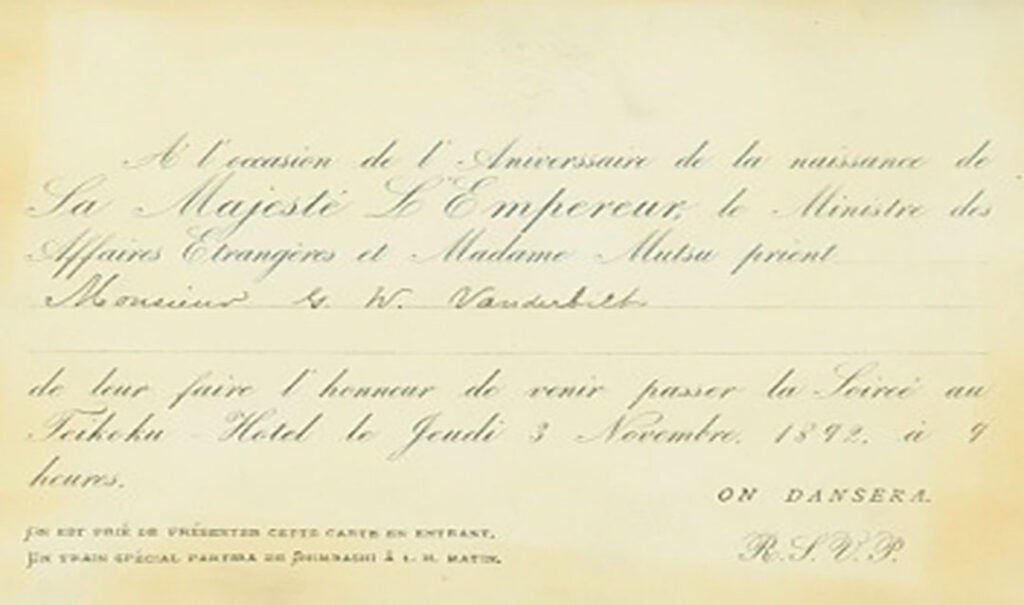 A l'occasion de l'Aniverssaire de la naissance de
Sa Majesté L'Empereur, le Ministre des
Affaires Etrangères et Madame Mutsu prient
Monsieur G. W. Vanderbilt
de leur faire l'honneur de venir passer la Soireé au
Teikoku - Hotel le Jeudi 3 Novembre. 1892. à 9
heures.
ON DANSERA.
ON EST PRIÉ DE PRÉSENTER CETTE CARTE EN ENTRANT.
UN TRAIN SPÉCIAL PARTIRA DE SHIMBASHI À 1. H. MATIN.
R.S.V.P.